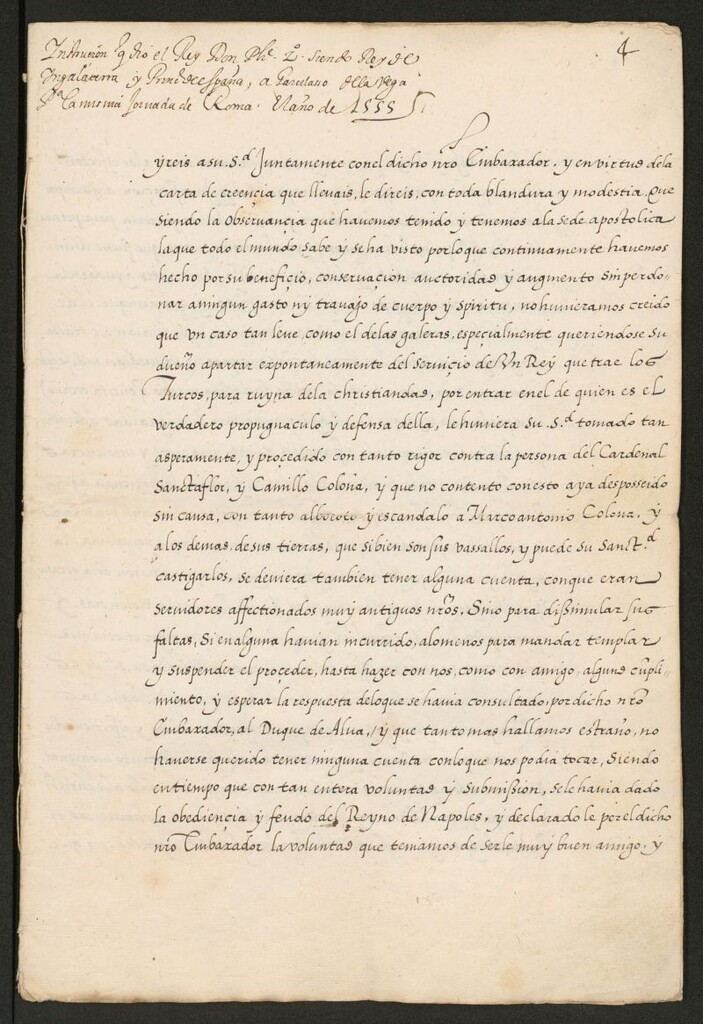 Instruction q̃ dió el Rey Don Phe. 2º. siendo Rey de
Ingalaterra y Princ. de españa, a Garcilaso de la Vega
pª la misma Jornada de Roma. El año de 1555
4
yreis a su S.d Juntamente con el dicho nr̃o Embaxador, y en virtud de la
carta de creencia que lleuais, le direis, con toda blandura y modestia, Que
siendo la obseruancia que hauemos tenido y tenemos a la sede apostolica
la que todo el mundo sabe y se ha visto por lo que continuamente hauemos
hecho por su beneficio, conseruacion auctoridad y augmento sin perdo-
nar a ningun gasto ny trauajo de cuerpo y spiritu, no huuieramos creido
que vn caso tan leue, como el de las galeras, especialmente queriendose su
dueño apartar expontaneamente del seruicio de Vn Rey que trae los
Turcos, para ruyna de la christiandad, por entrar en el de quien es el
verdadero propugnaculo y defensa della, le huuiera su S.d tomado tan
asperamente, y procedido con tanto rigor contra la persona del Cardenal
Sanctaflor, y Camillo Colona, y que no contento con esto aya desposseido
sin causa, con tanto alboroto y escandalo a Marcoantonio Colona, y
a los demas de sus tierras, que si bien son sus vassallos, y puede su Sanct.d
castigarlos, se deuiera tambien tener alguna cuenta, con que eran
seruidores affectionados muy antiguos nr̃os. Sino para dissimular sus
faltas, Si en alguna hauian incurrido, a lo menos para mandar templar
y suspender el proceder, hasta hazer con nos, como con amigo, algund cũpli-
miento, y esperar la respuesta de lo que se hauia consultado, por dicho nr̃o
Embaxador, al Duque de Alua, y que tanto mas hallamos estraño, no
hauerse querido tener ninguna cuenta con lo que nos podia tocar, siendo
en tiempo que con tan entera voluntad y submission, se le hauia dado
la obediençia y feudo del Reyno de Napoles, y declarado le por el dicho
nr̃o Embaxador la voluntad que teniamos de serle muy buen amigo, y